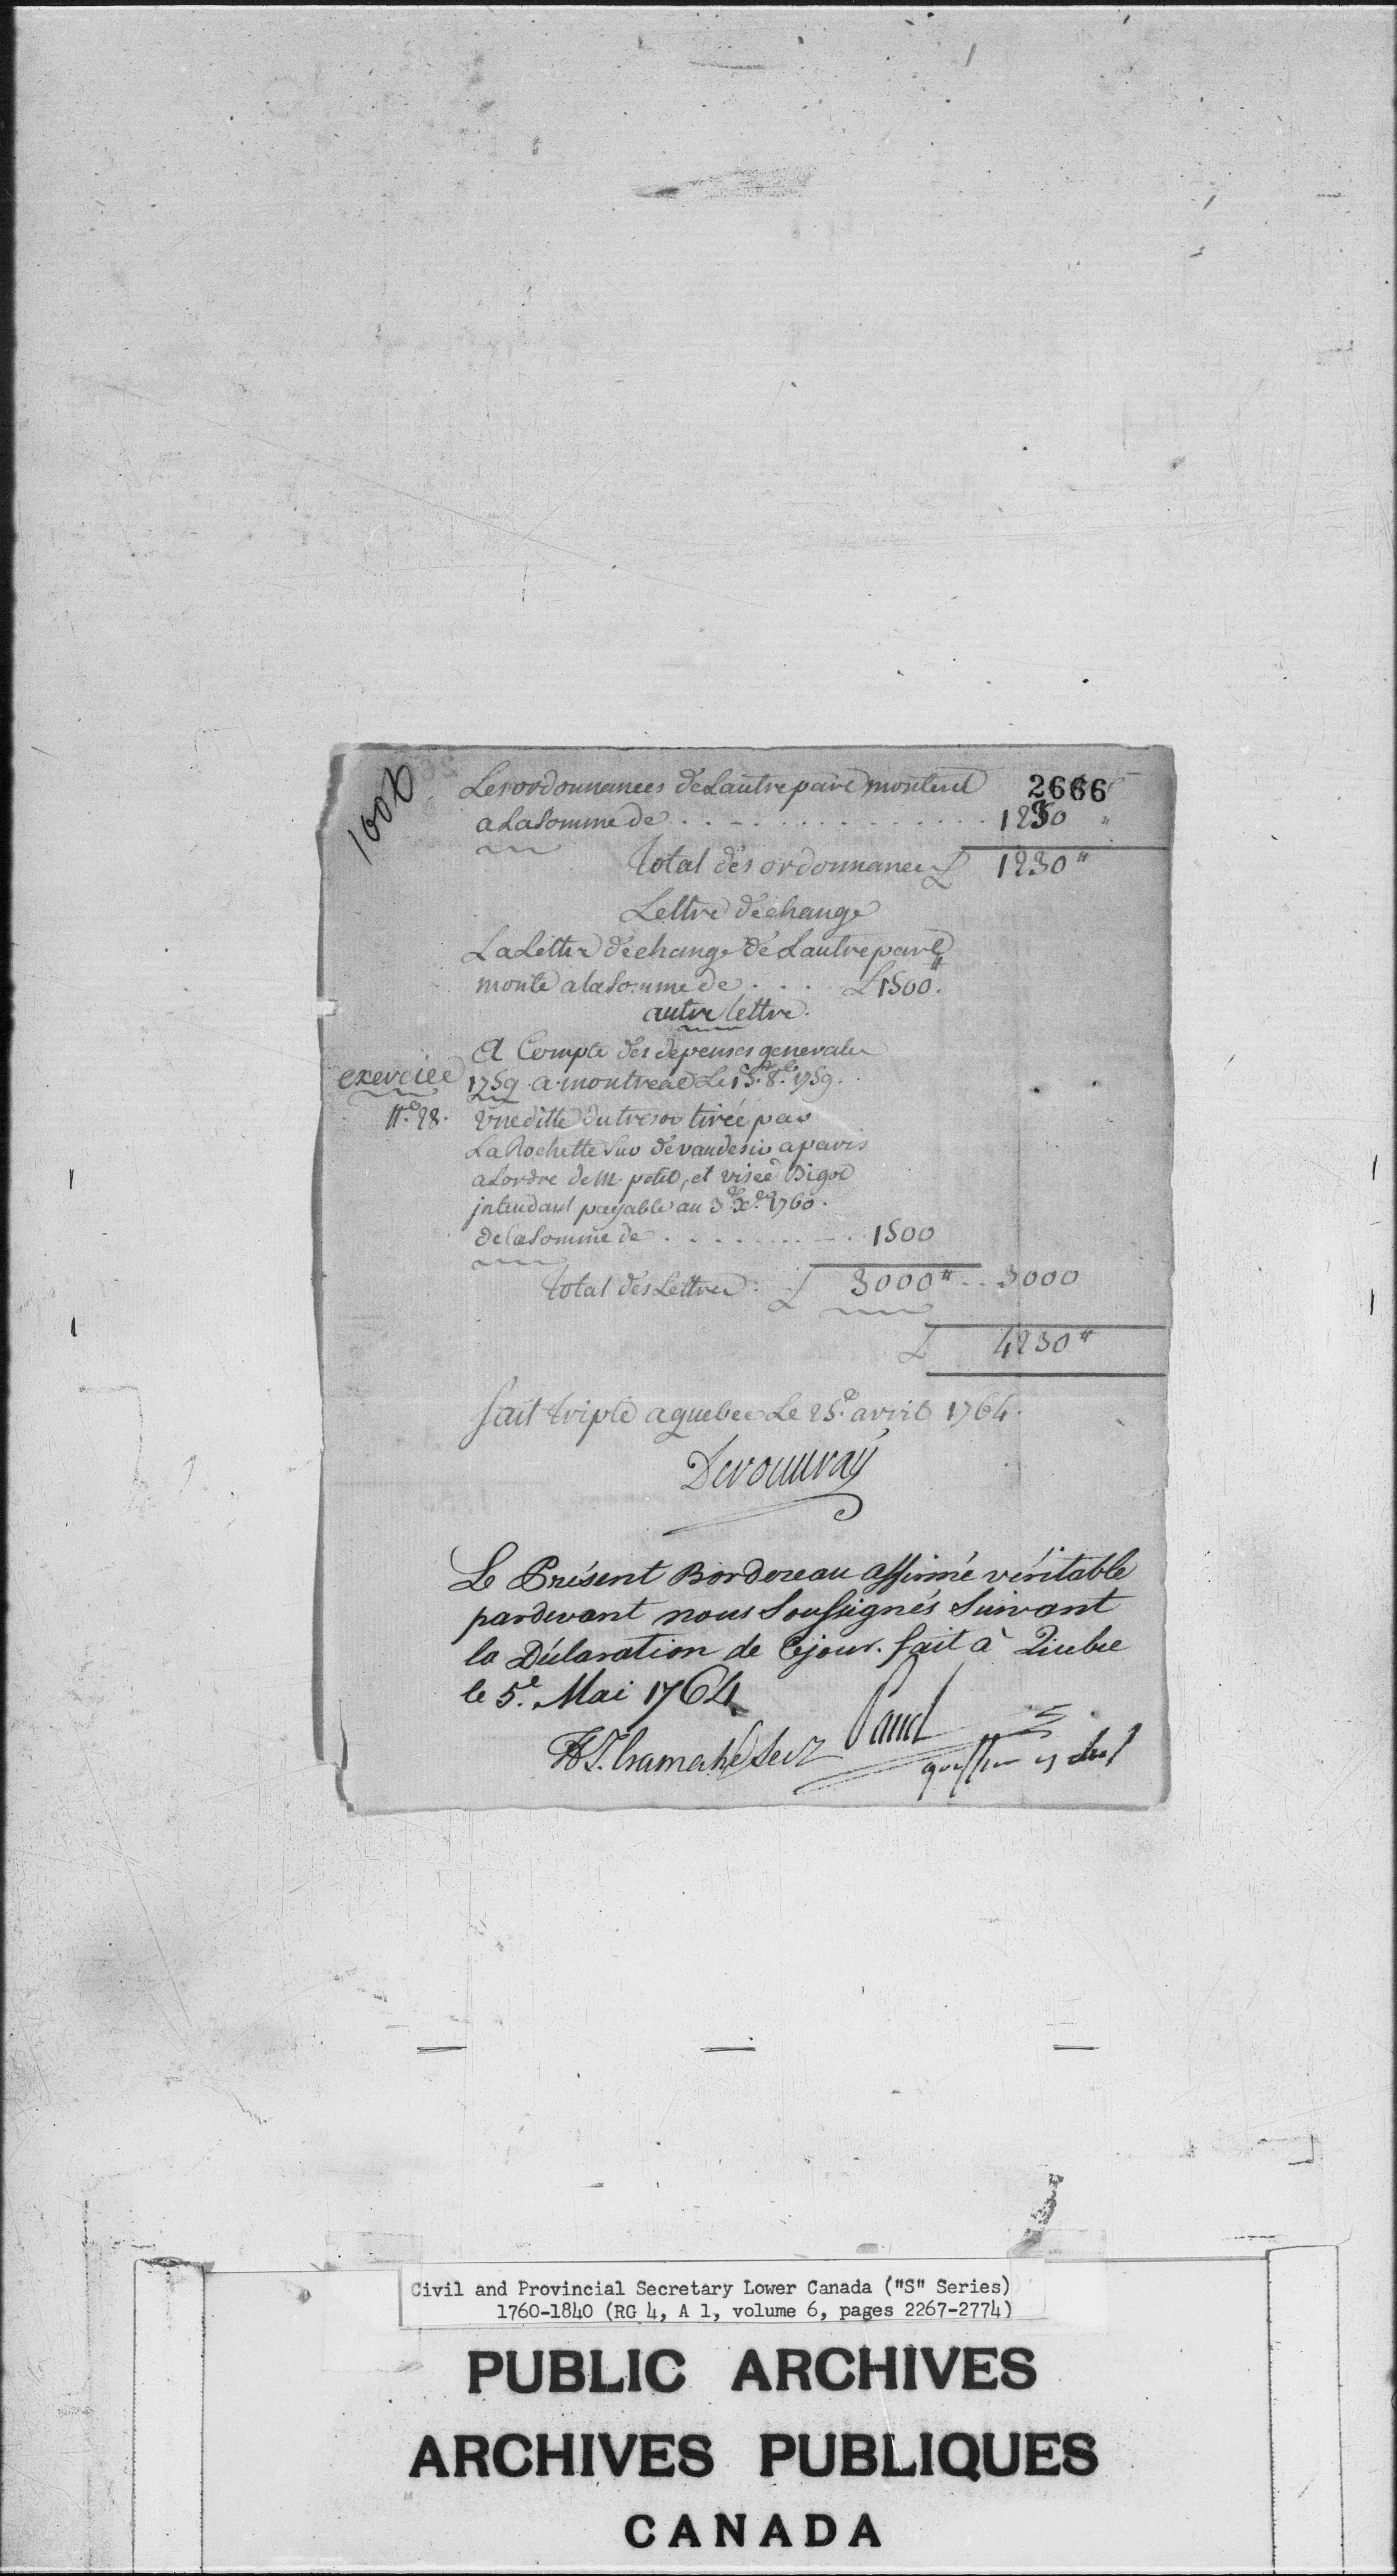 2666
1000
Les ordonnances de Lautre part montent
a La Somme de . . . . . . . . . . . . 1230 "
Total des ordonnances £ 1230"
Lettre déchange
La Lettre déchange de Lautre part
monte a la Somme de . . . £ 1500."
autre lettre.
A Compte des depenses generales
exercice 1759. a montreal Le 15.e 8.bre 1759.
N.o 28. une ditte du tresor tirée par
La Rochette Sur de vaudesir a paris
a Lordre de M. petit, et visée Bigot
intendant payable au 3.e X.bre 1760.
de la Somme de . . . . . . . . 1500
Total des Lettres : £ 3000" . . 3000
£ 4230"
fait triple a quebec Le 25.e avril 1764.
Derouvray
Le Présent Bordereau affirmé véritable
pardevant nous Soussignés Suivant
la Déclaration de Cejour. fait à Quebec
le 5.e Mai 1764
H T. Cramahé Secr Panet
greffier
Civil and Provincial Secretary Lower Canada ("S" Series)
1760-1840 (RG 4, A 1, volume 6, pages 2267-2774)
PUBLIC ARCHIVES
ARCHIVES PUBLIQUES
CANADA